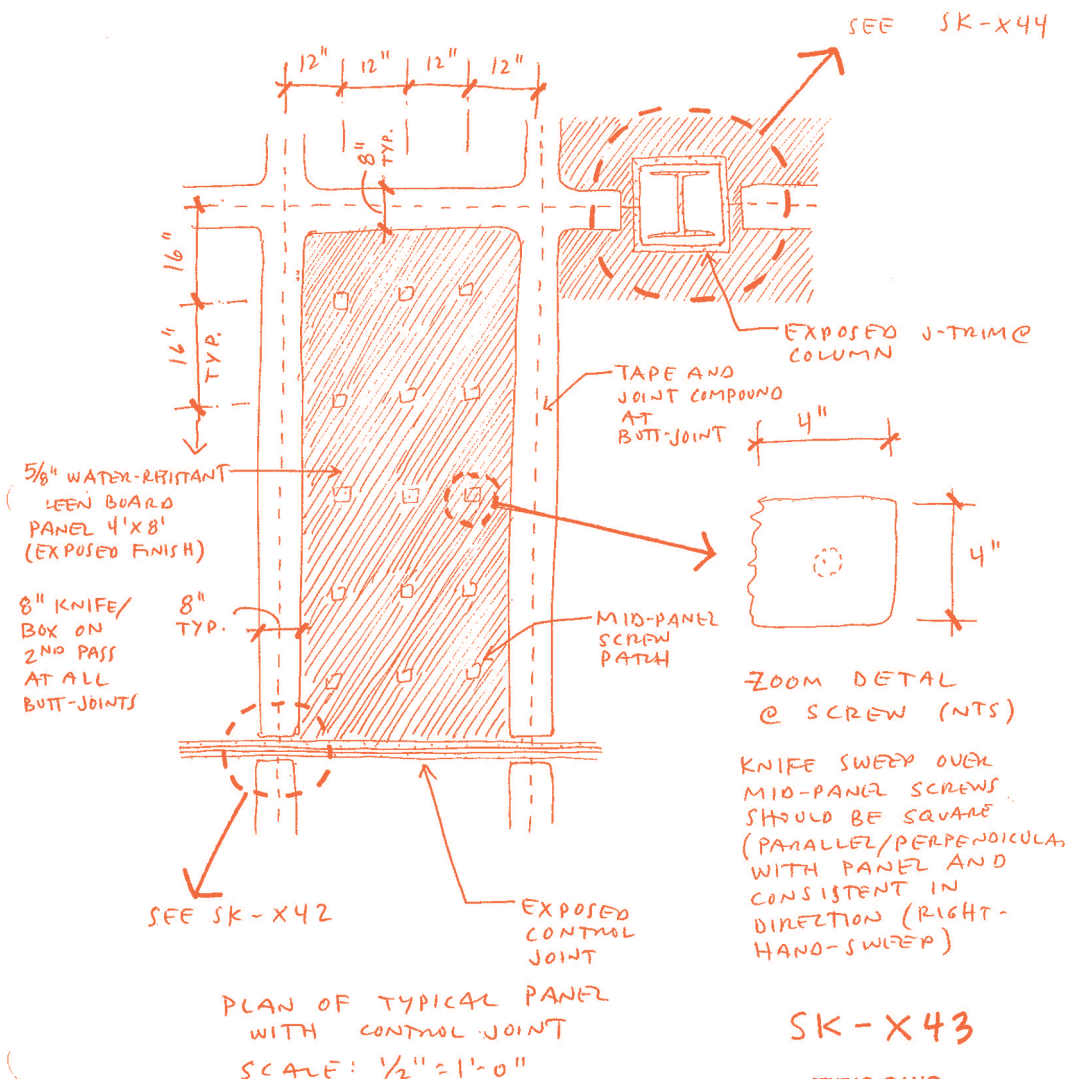 SEE SK-X44
12" 12" 12" 12"
8"
TYP.
16"
16"
TYP.
EXPOSED J-TRIM@
COLUMN
TAPE AND
JOINT COMPOUND
AT
BUTT-JOINT
4"
4"
5/8" WATER-RESISTANT
EEN BOARD
PANEL 4'X8'
(EXPOSED FINISH)
8" KNIFE/
BOX ON
2ND PASS
AT ALL
BUTT-JOINTS
8"
TYP.
MID-PANEL
SCREW
PATCH
ZOOM DETAL
@ SCREW (NTS)
KNIFE SWEEP OVER
MID-PANEL SCREWS
SHOULD BE SQUARE
(PARALLEL/PERPENDICULA
WITH PANEL AND
CONSISTENT IN
DIRECTION (RIGHT-
HAND-SWEEP)
SEE SK-X42
EXPOSED
CONTROL
JOINT
PLAN OF TYPICAL PANEL
WITH CONTROL JOINT
SCALE: 1/2" = 1'-0"
SK-X43